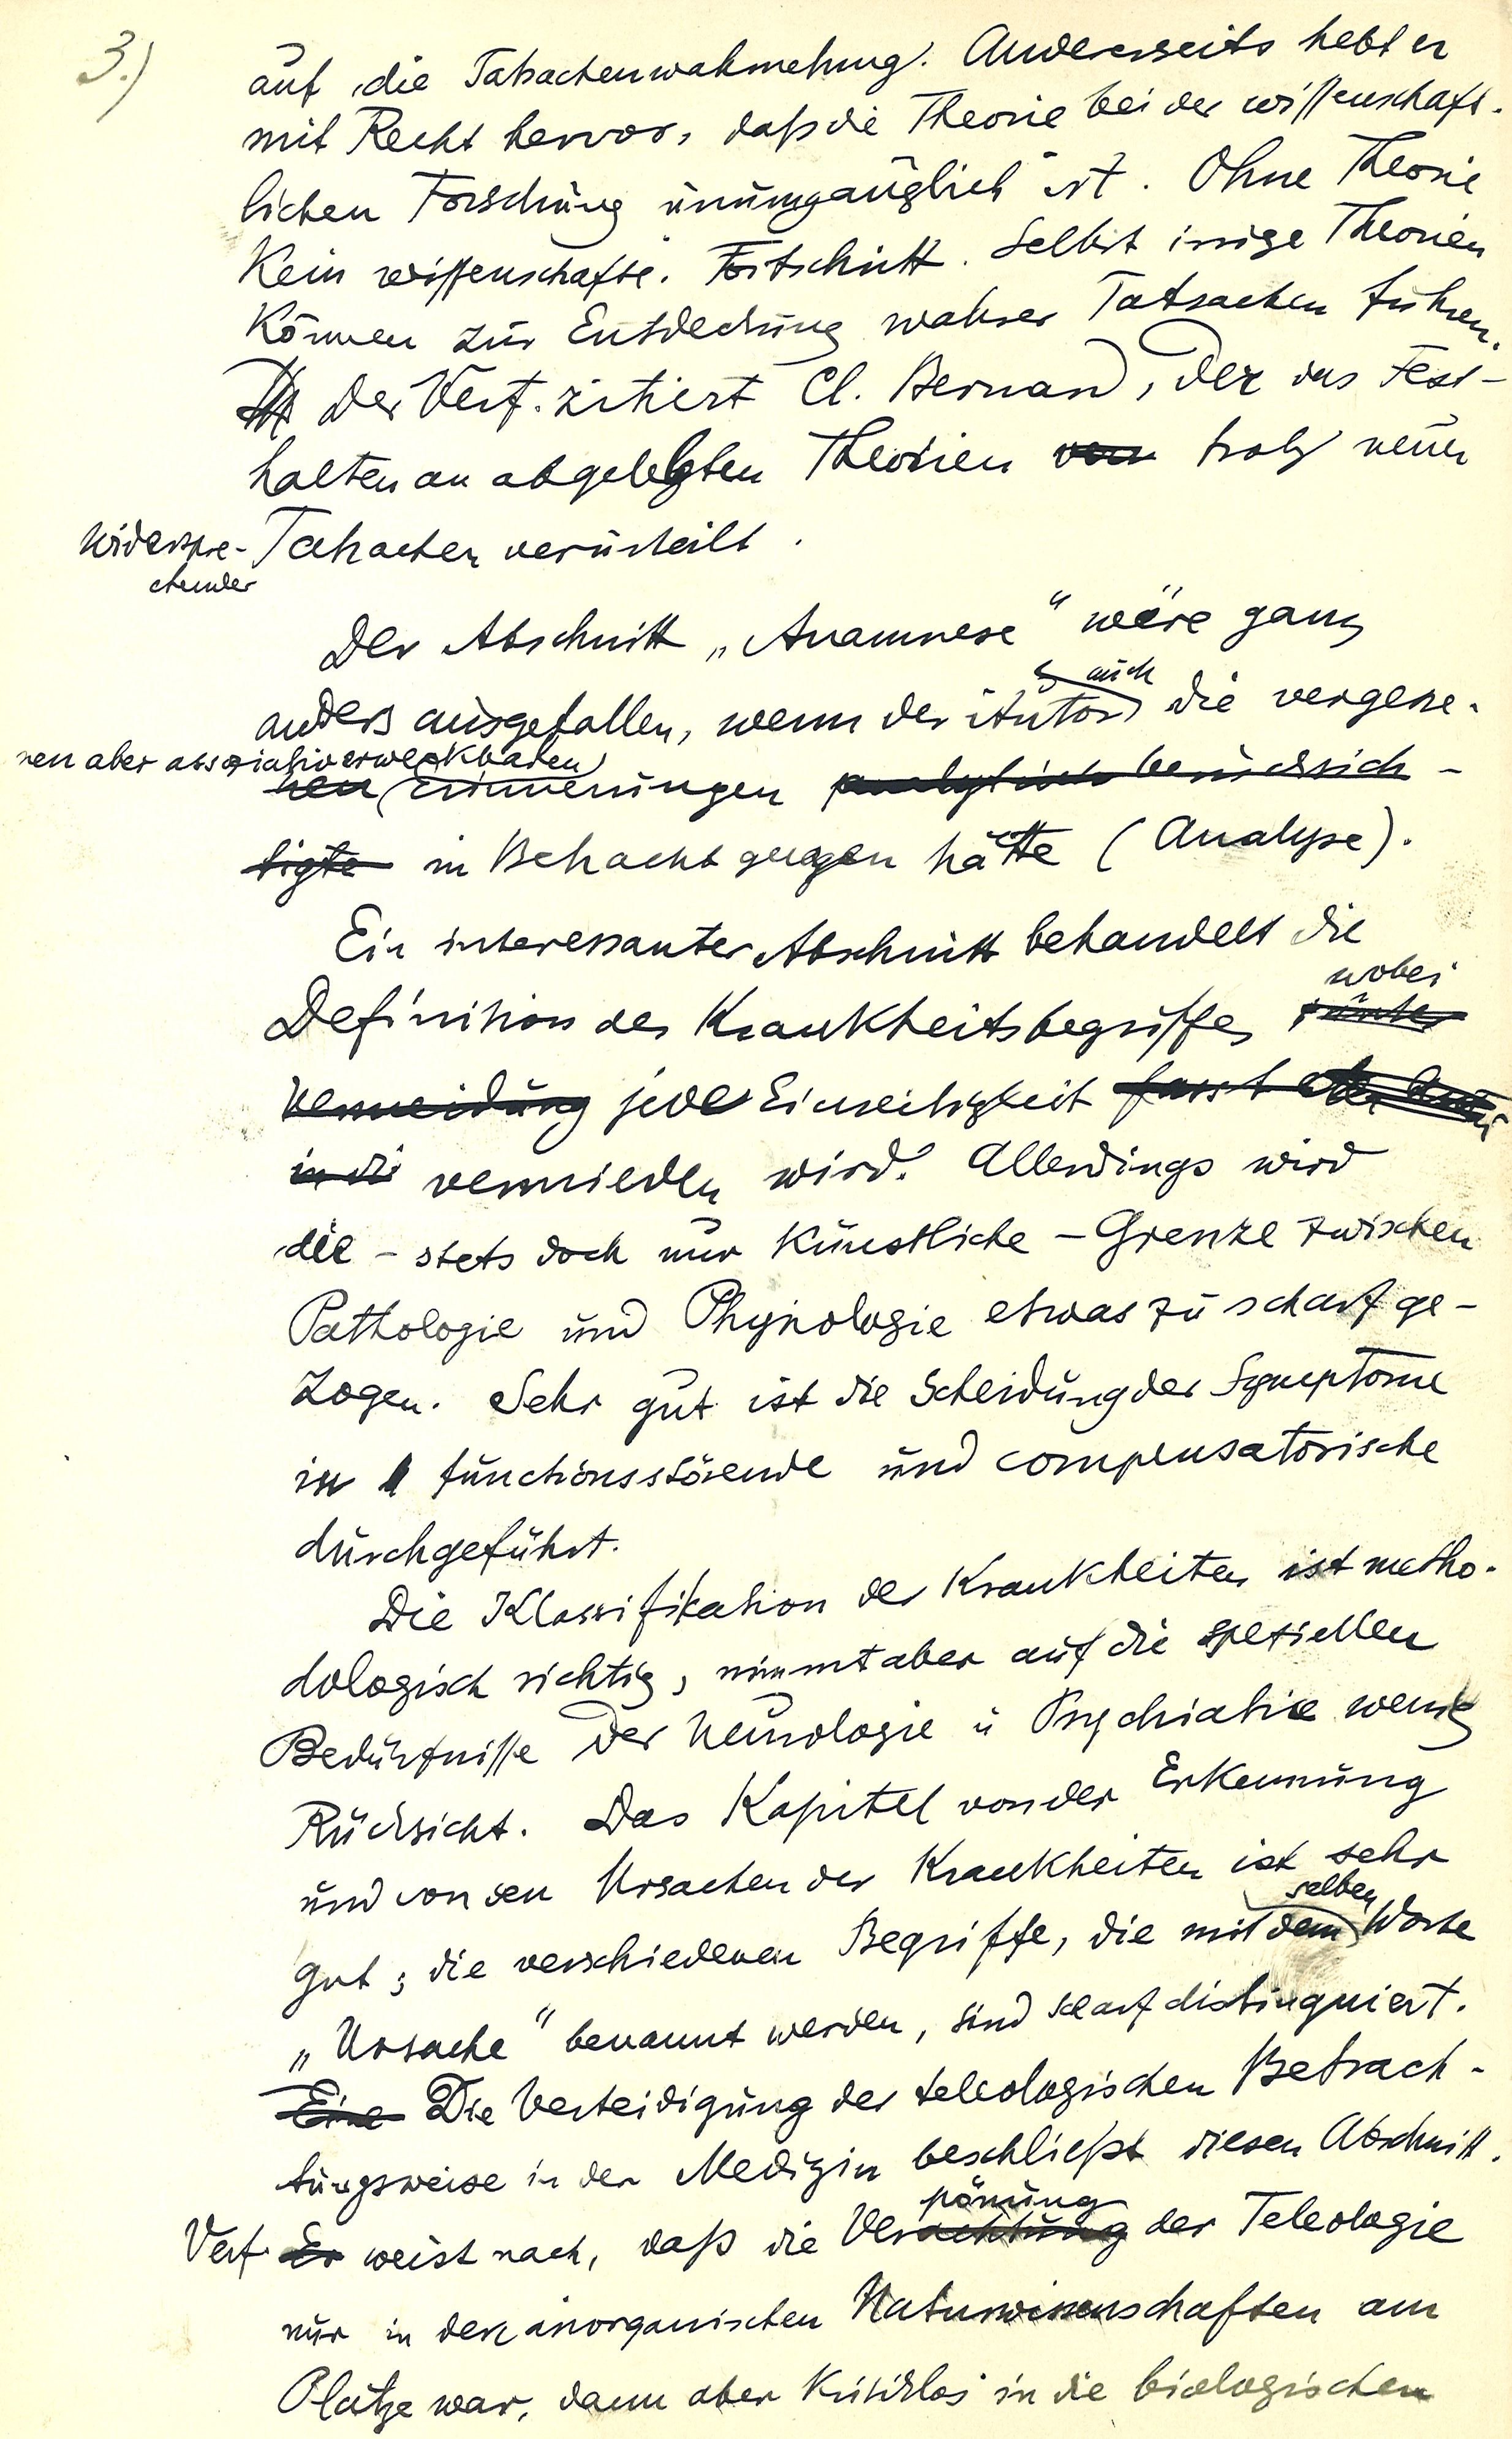 3.)
auf die Tatsachenwahrnehmung. Andererseits hebt er
mit Recht hervor, daß die Theorie bei der wissenschaft-
lichen Forschung unumgänglich ist. Ohne Theorie
kein wissenschaftl. Fortschritt. Selbst irrige Theorien
können zur Entdeckung wahrer Tatsachen führen.
Der Verf. zitiert Cl. Bernard, der das Fest-
halten an abgelebten Theorien trotz neuer
widerspre-
chender
Tatsachen verurteilt.
Der Abschnitt „Anamnese“ wäre ganz
auch
anders ausgefallen, wenn der Autor die vergesse-
nen aber assoziativ erweckbaren
nen Erinnerungen analytisch berücksich-
tigte in Betracht gezogen hätte (Analyse).
Ein interessanter Abschnitt behandelt die
wobei
Definition des Krankheitsbegriffes, unter
Vermeidung jede Einseitigkeit fasst
in die vermieden wird. Allerdings wird
die – stets doch nur künstliche – Grenze zwischen
Pathologie und Physiologie etwas zu scharf ge-
zogen. Sehr gut ist die Scheidung der Symptome
in functionsstörende und compensatorische
durchgeführt.
Die Klassifikation der Krankheiten ist metho-
dologisch richtig, nimmt aber auf die speziellen
Bedürfnisse der Neurologie u Psychiatrie wenig
Rücksicht. Das Kapitel von der Erkennung
und von den Ursachen der Krankheiten ist sehr
selben
gut; die verschiedenen Begriffe, die mit dem Worte
„Ursache“ benannt werden, sind scharf distinguiert.
Eine Die Verteidigung der teleologischen Betrach-
tungsweise in der Medizin beschließt diesen Abschnitt.
pönung
Verf. Er weist nach, daß die Verachtung der Teleologie
nur in den anorganischen Naturwissenschaften am
Platze war, dann aber kritiklos in die biologischen